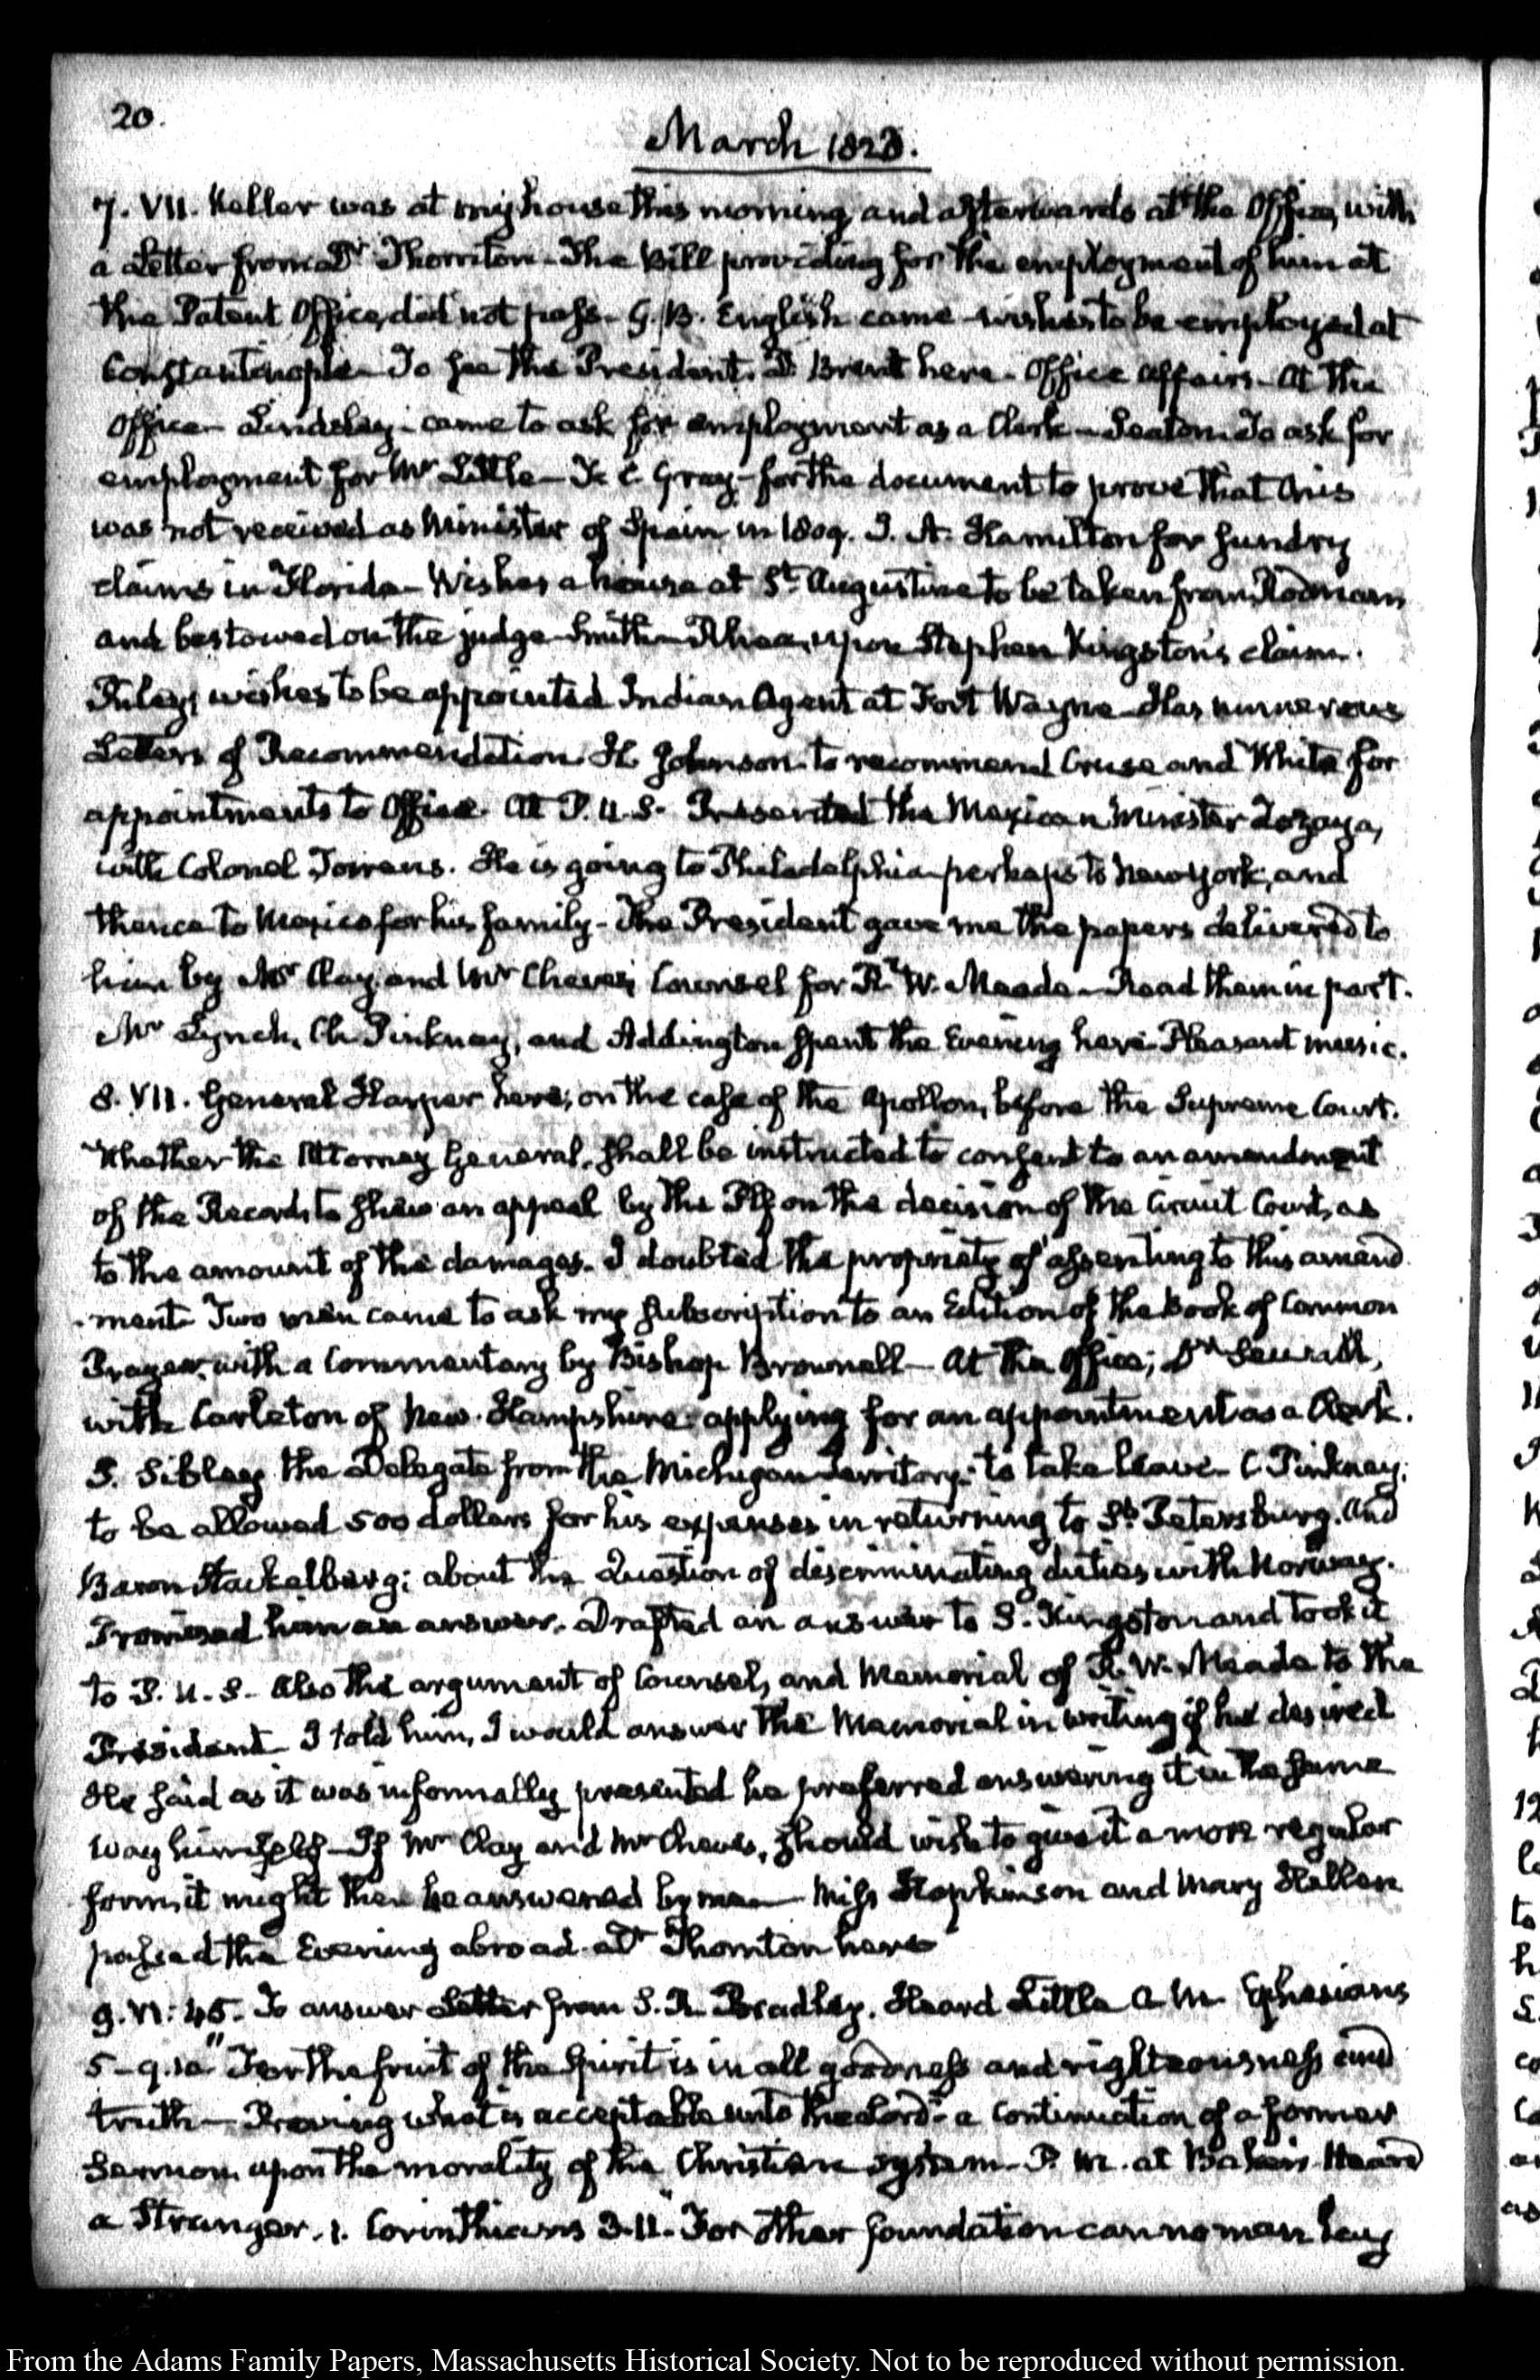 20.
March 1823.
7. VII. Keller was at my house this morning and afterwards at the Office, with
a Letter from Dr Thornton. The Bill providing for the employment of him at
the Patent Office, did not pass. G. B. English came wishes to be employed at
Constantinople. To see the President. D Brent here. Office affairs. At the
Office. Lindsley. came to ask for employment as a Clerk. Seaton. To ask for
employment for Mr Little. F. C. Gray. for the document to prove that Onis
was not received as Minister of Spain in 1809. J. A. Hamilton for sundry
claims in Florida. Wishes a house at St Augustine to be taken from Rodman
and bestowed on the judge Smith. Rhea, upon Stephen Kingston's claim.
wishes to be appointed Indian Agent at Fort Wayne. Has numerous
Letters of Recommendation. H. Johnson. to recommend Cruse and White for
appointments to Office. At P.U.S. Presented the Mexican Minister Zozaya,
with Colonel Torrens. He is going to Philadelphia perhaps to New York, and
thence to Mexico for his family. The President gave me the papers delivered to
him by Mr Clay and Mr Cheves, Counsel for R. W. Meade. Read them in part.
Mr Lynch, Ch. Pinkney, and Addington spent the Evening here. Pleasant music.
8. VII. General Harper here; on the case of the Apollon, before the Supreme Court.
Whether the Attorney General, shall be instructed to consent to an amendment
of the Record, to shew an appeal by the Plf on the decision of the Circuit Court, as
to the amount of the damages. I doubted the propriety of assenting to this amend
-ment. Two men came to ask my subscription to an Edition of the Book of Common
Prayer, with a Commentary by Bishop Brownell. At the Office; Dr Sewall,
with Carleton of New-Hampshire applying for an appointment as a Clerk.
S. Sibley the Delegate from the Michigan Territory: to take leave. C. Pinkney;
to be allowed 500 dollars for his expenses in returning to St Petersburg. And
Baron Stackelberg; about the Question of discriminating duties with Norway.
Promised him an answer. Drafted an answer to S. Kingston and took it
to P.U.S. Also the argument of Counsel, and Memorial of R. W. Meade to the
President. I told him, I would answer the Memorial in writing if he desired
He said as it was informally presented he preferred answering it in the same
way himself. If Mr Clay and Mr Cheves, should wish to give it a more regular
form, it might then be answered by me. Miss Hopkinson and Mary Hellen
passed the Evening abroad. Dr Thornton here
9. VI: 45. To answer Letter from S. R. Bradley. Heard Little A.M. Ephesians
5-9.10 "For the fruit of the Spirit is in all goodness and righteousness and
truth. Proving what is acceptable unto the Lord" a continuation of a former
Sermon upon the morality of the Christian system. P.M. at Baker's. Heard
a Stranger. 1. Corinthians 3.11. For other foundation can no man lay
From the Adams Family Papers, Massachusetts Historical Society. Not to be reproduced without permission.